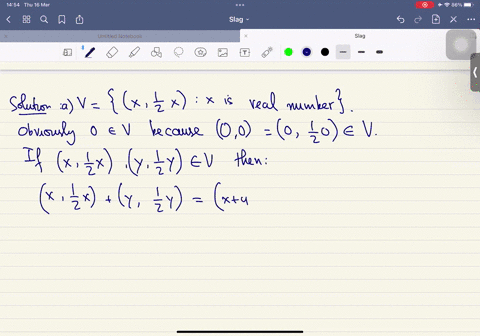 14:54 Thu 16 Mar
86%
Slag
Slag
Solution: a) V = { (x, 1/2 x) : x is real number }.
Obviously 0 ∈ V because (0,0) = (0, 1/2 0) ∈ V.
If (x, 1/2 x), (y, 1/2 y) ∈ V then:
(x, 1/2 x) + (y, 1/2 y) = (x+y